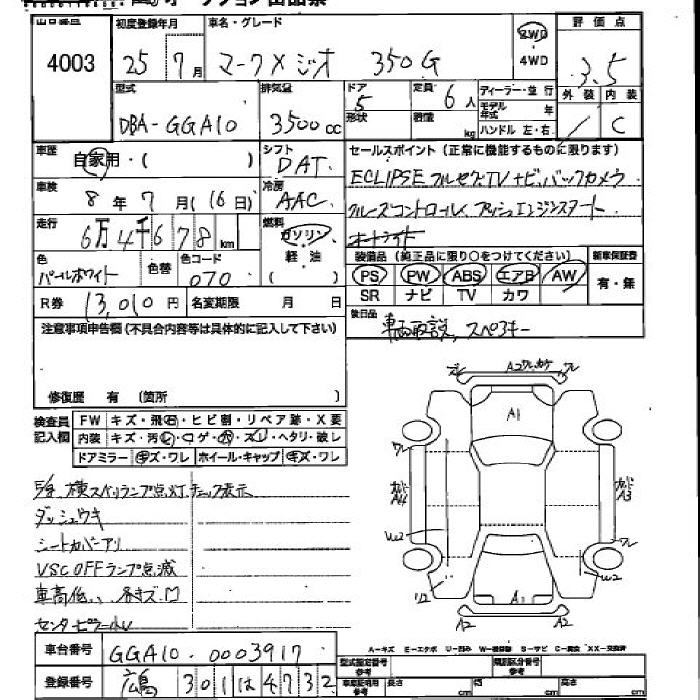 4003
初度登録年月 車名・グレード 評価点
25 7月 マークXジオ 350G 2WD 4WD 3.5
型式 排気量 ドア 定員 ディーラー・並行 外装 内装
DBA-GGA10 3500cc 5 6人 モデル年式 年 C
形状 積載 kg ハンドル 左・右
車歴 自家用・( ) シフト DAT セールスポイント(正常に機能するものに限ります)
車検 8年 7月(16日) 冷房 AAC ECLIPSE フルセグTVナビ、バックカメラ
走行 6万4千678km 燃料 ガソリン 軽油 ( ) クルーズコントロール、プッシュエンジンスタート
オートライト
色 パールホワイト 色替 色コード 070 装備品(純正品に限り○をつけてください) 新車保証書
PS PW ABS エアB AW 有・無
SR ナビ TV カワ
R券 13,010円 名変期限 月 日 後日品 車両取説、スペアキー
注意事項申告欄(不具合内容等は具体的に記入して下さい)
修復歴 有 (箇所 )
検査員記入欄 FW キズ・飛石・ヒビ割・リペア跡・X要
内装 キズ・汚レ・コゲ・穴・スレ・ヘタリ・破レ
ドアミラー キズ・ワレ ホイール・キャップ キズ・ワレ
横スベリランプ点灯 チェック表示
ダッシュウキ
シートカバーアリ
VSC OFFランプ点滅
車高低い、各キズ・凹
センターピラー
A1
A1
A2
A2
A3
A4
W2
W2
ワレ
ワレ
車台番号 GGA10-0003917
A=キズ E=エクボ U=凹み W=補修跡 S=サビ C=腐食 XX=交換済
登録番号 広島 301 は 4732
型式指定番号 参考 類別区分番号 参考
車庫証明用 参考 長さ cm 幅 cm 高さ cm